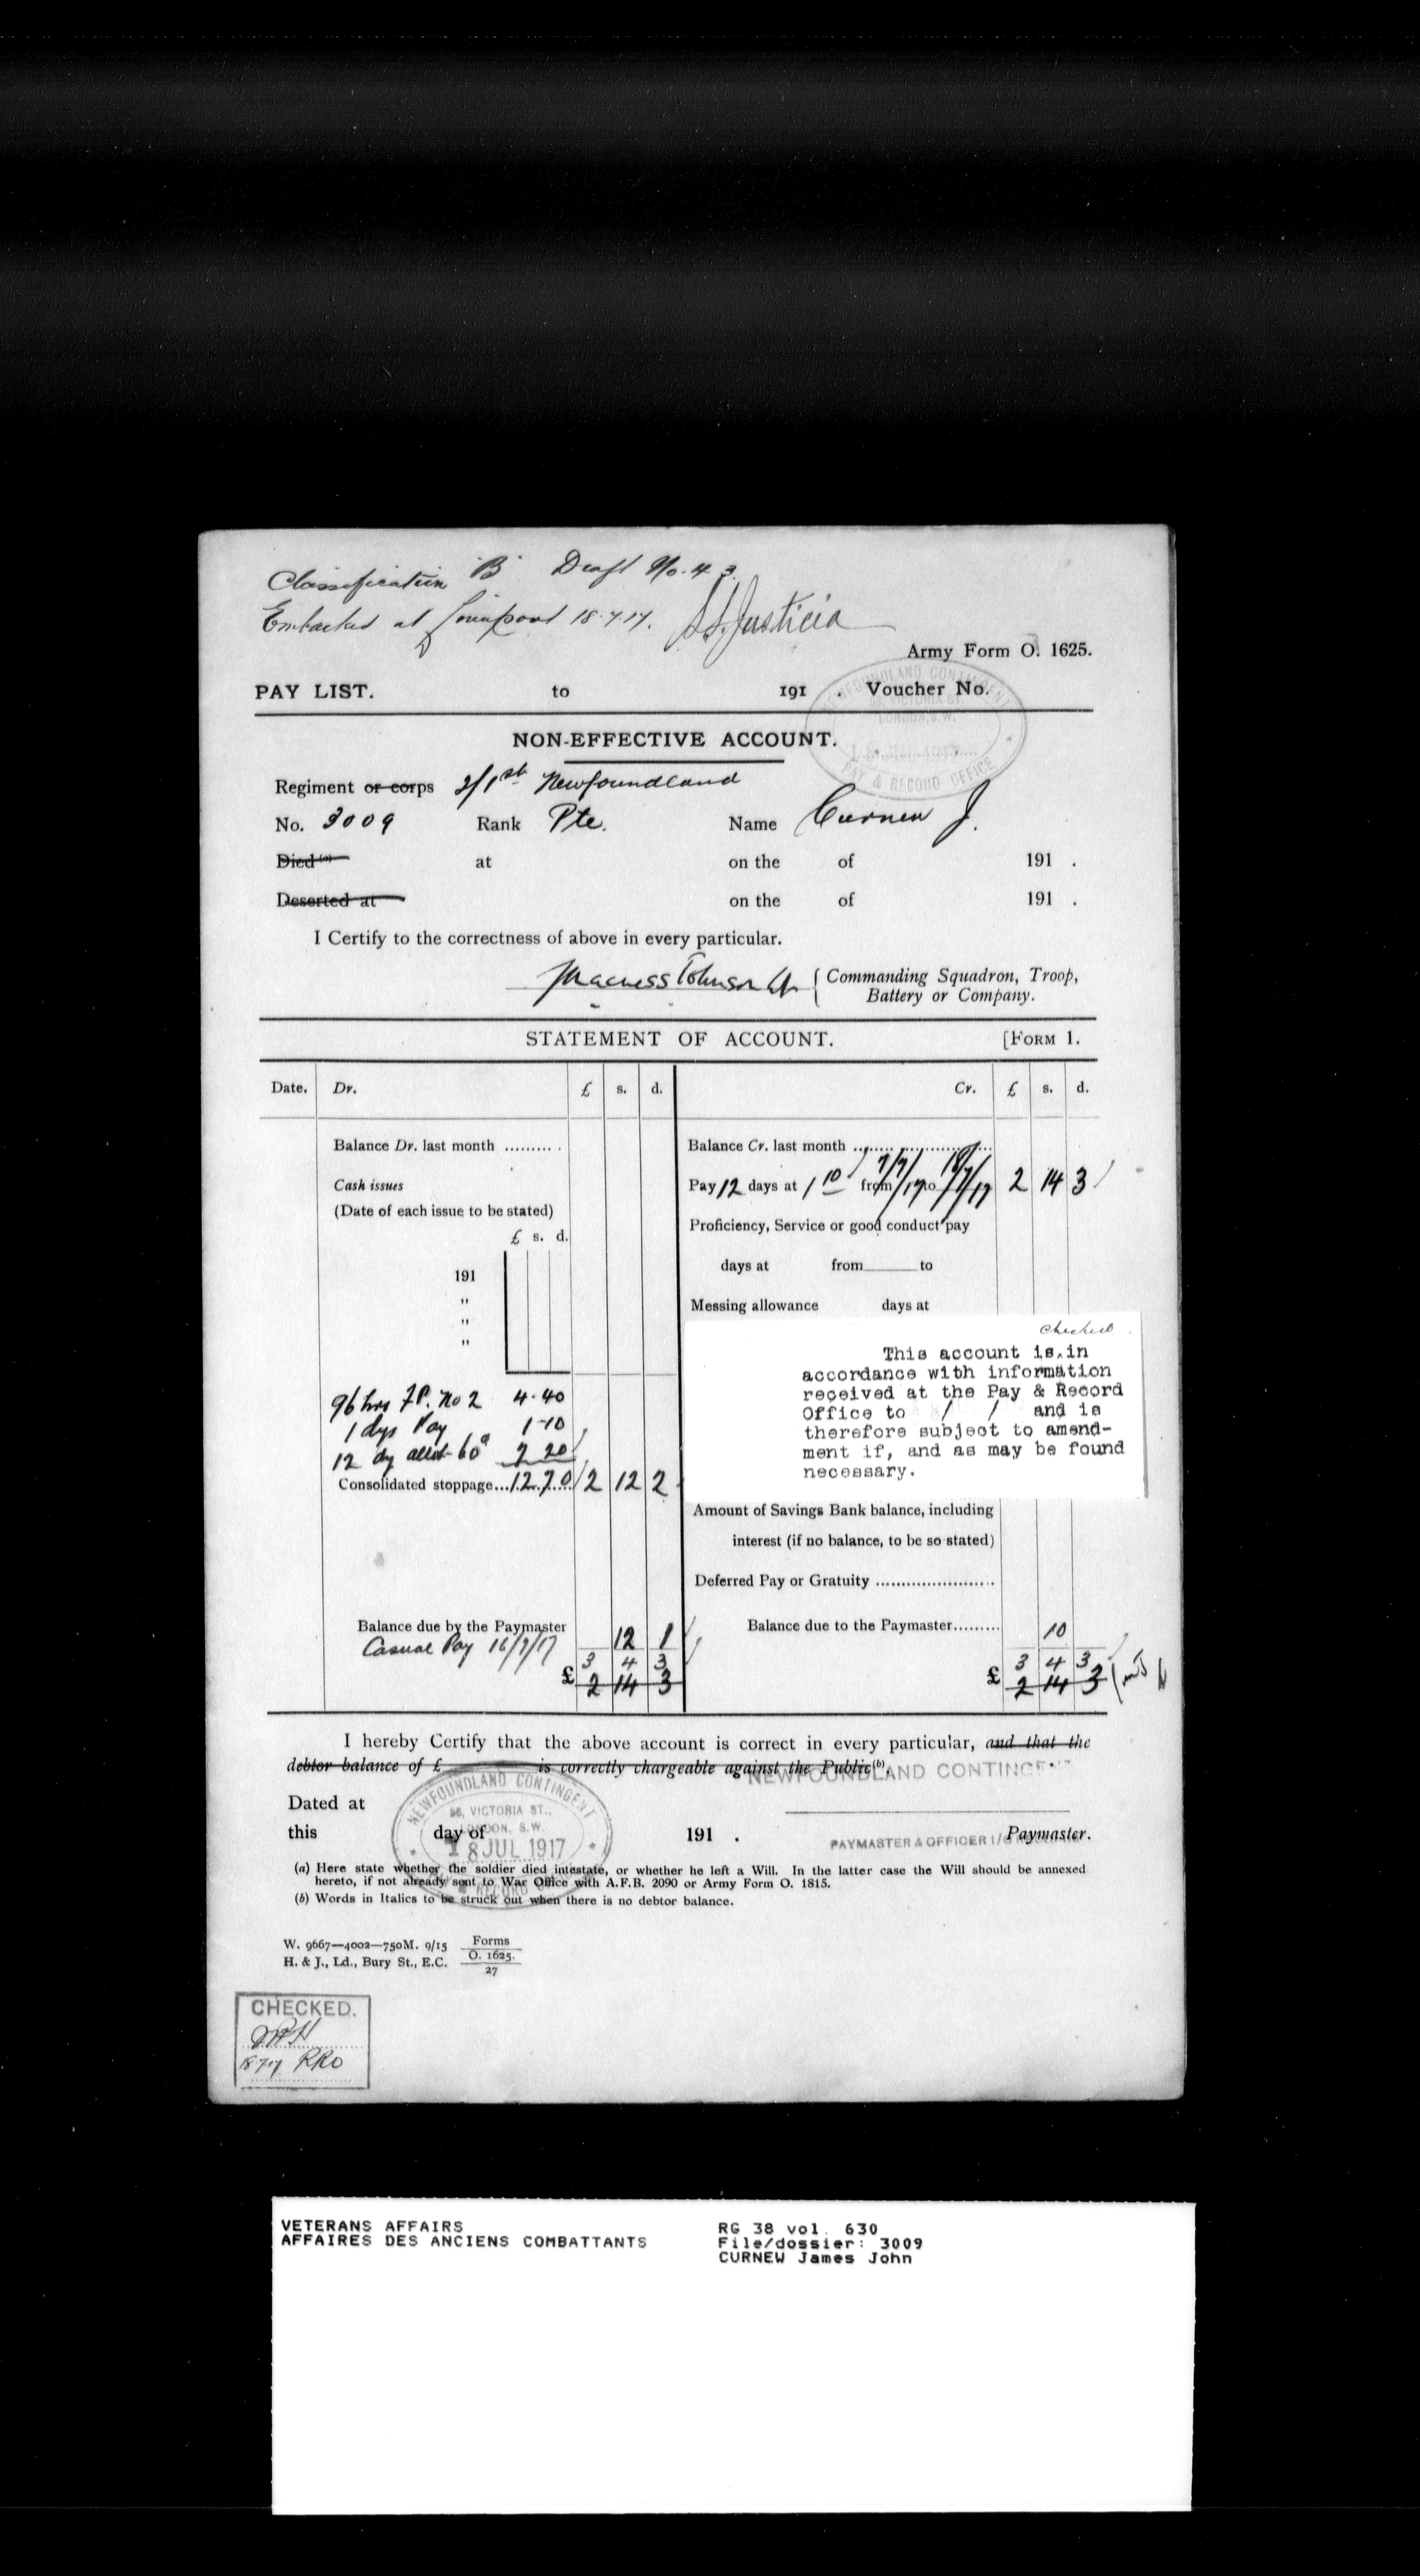 Classification "B" Draft No. 43.
Embarked at Liverpool 18.7.17. S.S. Justicia
Army Form O. 1625.
PAY LIST. to 191 . Voucher No.
NEWFOUNDLAND CONTINGENT
58, VICTORIA ST.
LONDON, S.W.
PAY & RECORD OFFICE
NON-EFFECTIVE ACCOUNT.
Regiment or corps 2/1st Newfoundland
No. 3009 Rank Pte. Name Curnew J.
Died (a) at on the of 191 .
Deserted at on the of 191 .
I Certify to the correctness of above in every particular.
Commanding Squadron, Troop,
Battery or Company.
STATEMENT OF ACCOUNT. [FORM 1.
Date. Dr. £ s. d. Cr. £ s. d.
Balance Dr. last month .......... Balance Cr. last month ..........
Cash issues Pay 12 days at 1 10 from 7/7/17 to 18/7/17 2 14 3
(Date of each issue to be stated)
Proficiency, Service or good conduct pay
£ s. d.
days at from to
191
"
Messing allowance days at
"
"
checked
This account is in
accordance with information
received at the Pay & Record
Office to / / and is
therefore subject to amend-
ment if, and as may be found
necessary.
96 hrs F.P. No 2 4.40
1 dys Pay 1-10
12 dy allot 60c 7 20
Consolidated stoppage...12.70.... 2 12 2
Amount of Savings Bank balance, including
interest (if no balance, to be so stated)
Deferred Pay or Gratuity ......................
Balance due by the Paymaster 12 1 Balance due to the Paymaster......... 10
Casual Pay 16/7/17
3 4 3 3 4 3
£ 2 14 3 £ 2 14 3
I hereby Certify that the above account is correct in every particular, and that the
debtor balance of £ is correctly chargeable against the Public(b).
NEWFOUNDLAND CONTINGENT
Dated at
this day of 191 . Paymaster.
PAYMASTER & OFFICER I/C
NEWFOUNDLAND CONTINGENT
58, VICTORIA ST.,
LONDON, S.W.
18 JUL 1917
RECORD
(a) Here state whether the soldier died intestate, or whether he left a Will. In the latter case the Will should be annexed
hereto, if not already sent to War Office with A.F.B. 2090 or Army Form O. 1815.
(b) Words in Italics to be struck out when there is no debtor balance.
W. 9667—4002—750M. 9/15 Forms
H. & J., Ld., Bury St., E.C. O. 1625.
27
CHECKED.
18.7.17 RRO
VETERANS AFFAIRS RG 38 vol. 630
AFFAIRES DES ANCIENS COMBATTANTS File/dossier: 3009
CURNEW James John